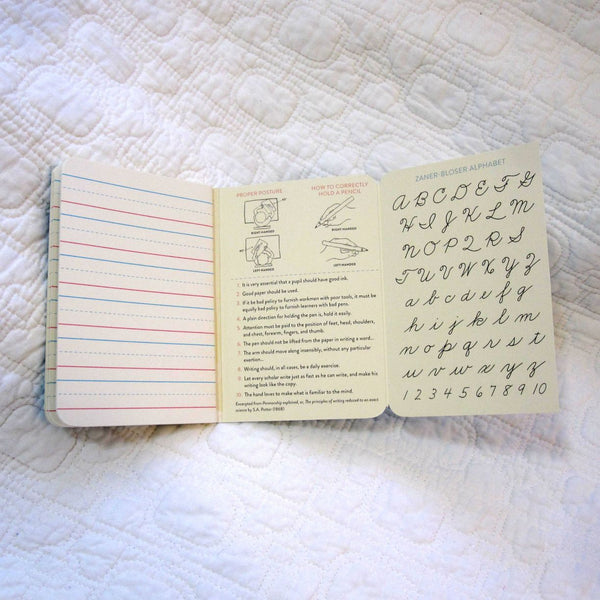 PROPER POSTURE
HOW TO CORRECTLY
HOLD A PENCIL
RIGHT-HANDER
RIGHT-HANDER
LEFT-HANDER
LEFT-HANDER
1. It is very essential that a pupil should have good ink.
2. Good paper should be used.
3. If it be bad policy to furnish workmen with poor tools, it must be
equally bad policy to furnish learners with bad pens.
4. A plain direction for holding the pen is, hold it easily.
5. Attention must be paid to the position of feet, head, shoulders,
and chest, forearm, fingers, and thumb.
6. The pen should not be lifted from the paper in writing a word...
7. The arm should move along insensibly, without any particular
exertion...
8. Writing should, in all cases, be a daily exercise.
9. Let every scholar write just as fast as he can write, and make his
writing look like the copy.
10. The hand loves to make what is familiar to the mind.
Excerpted from Penmanship explained, or, The principles of writing reduced to an exact
science by S.A. Potter (1868)
ZANER-BLOSER ALPHABET
A B C D E F G
H I J K L M
N O P Q R S
T U V W X Y Z
a b c d e f g
h i j k l m
n o p q r s t
u v w x y z
1 2 3 4 5 6 7 8 9 10